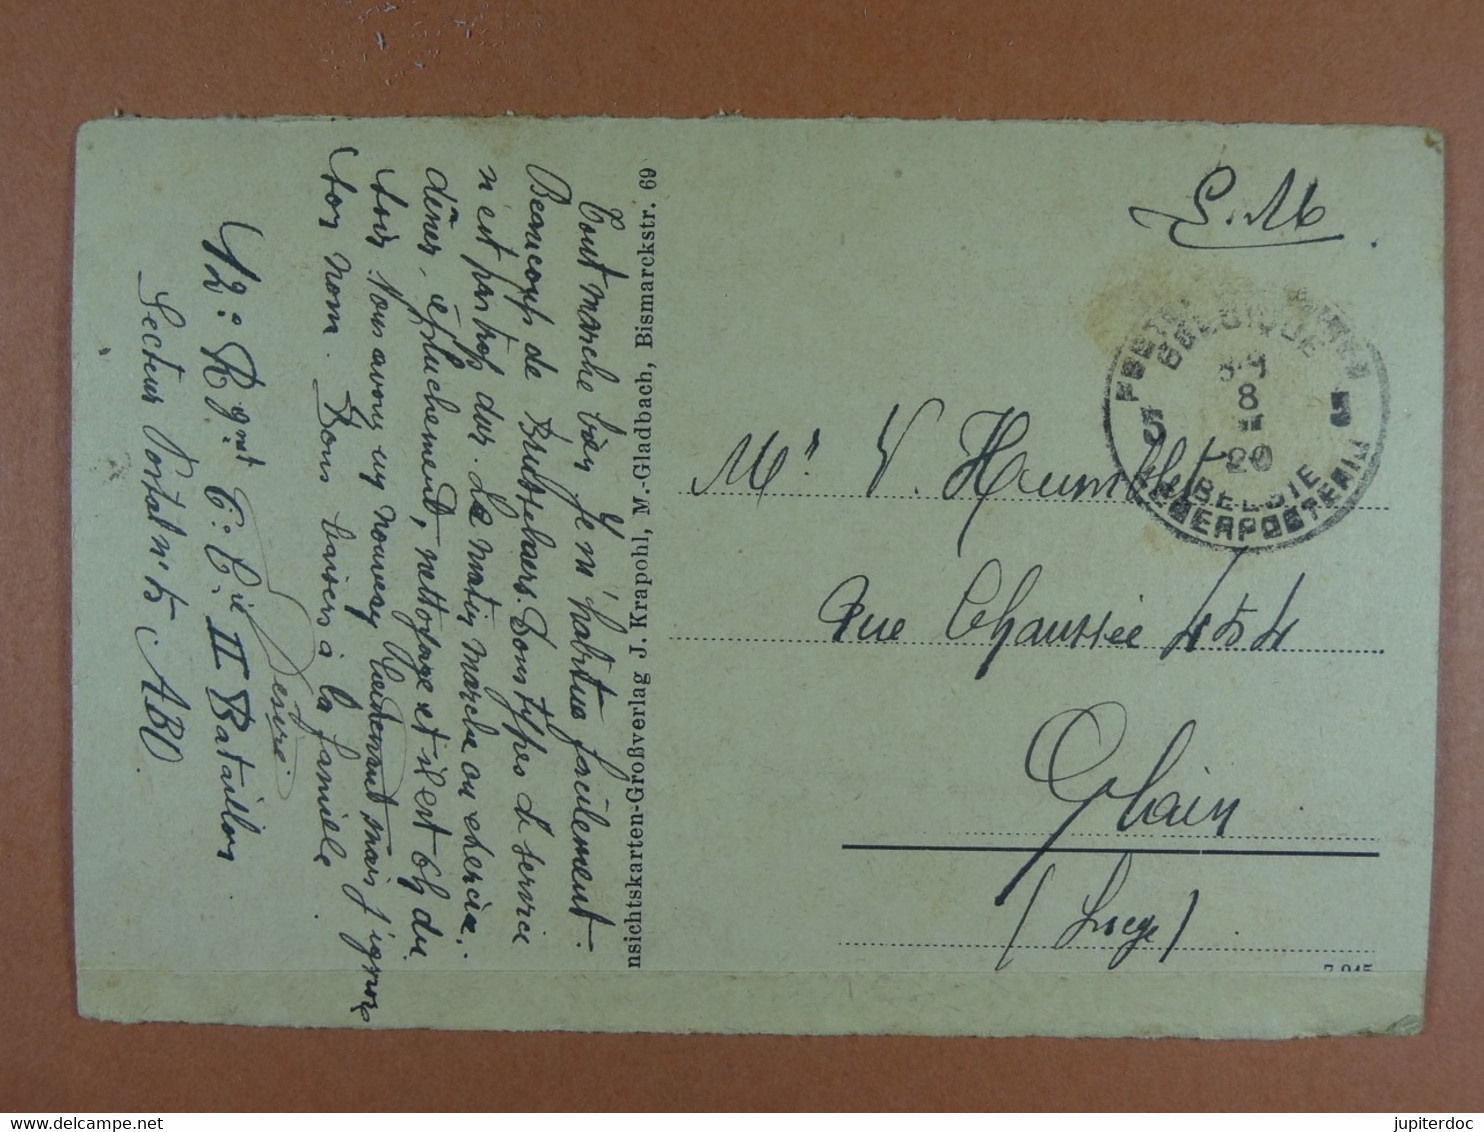 Tout marche bien je m'habitue facilement.
Beaucoup de Bruxselaers. Bons types d service
n'est pas trop dur. Le matin marche ou exercice.
dîner, épluchement, nettoyage et il est 6h du
soir. Nous avons un nouveau Lieutenant mais j'ignore
son nom. Bons baisers à la famille
Désiré.
12e Rgmt 6e Cie II Bataillon
Secteur Postal n° 5 ABO.
nsichtskarten-Großverlag J. Krapohl, M.-Gladbach, Bismarckstr. 69
S.M.
BELGIQUE
8
20
5 5
BELGIE
LEGERPOSTERIJ
Mr V. Humblet
Rue Chaussée 454
Glain
(Liege)
7 945
www.delcampe.net
jupiterdoc